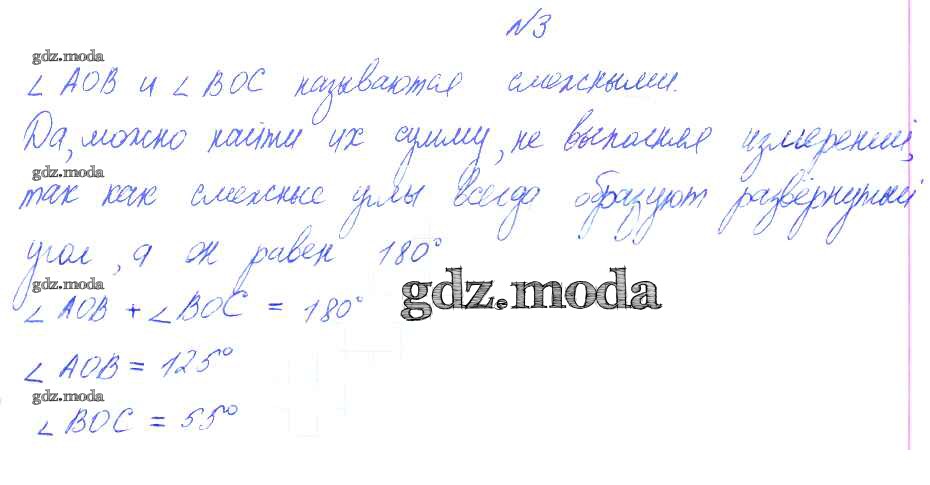 №3
gdz.moda
∠ AOB и ∠ BOC называются смежными.
Да, можно найти их сумму, не выполняя измерений,
gdz.moda
так как смежные углы всегда образуют развёрнутый
угол, а он равен 180°
gdz.moda
gdz.moda
∠ AOB + ∠ BOC = 180°
∠ AOB = 125°
gdz.moda
∠ BOC = 55°